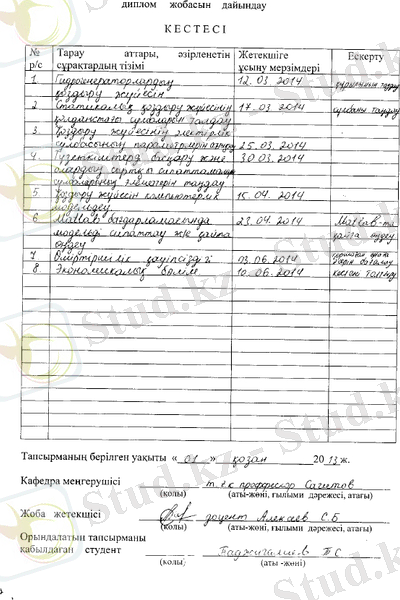 диплом жобасын дайындау
КЕСТЕСІ
№ р/с
Тарау аттары, әзірленетін сұрақтардың тізімі
Жетекшіге ұсыну мерзімдері
Ескерту
1. Гидрогенераторлардың қоздыру жүйесін 12. 03. 2014
2 Статикалық қоздыру жүйесінің 17. 03 2014
сұлбаларын талдау
3 Қоздыру жүйесінің электрлік
сұлбасының параметрлерін 25. 03 2014
4 және 30. 03. 2014
сыртқы
таңдау
5 Қоздыру жүйесін компьютерлік 15. 04. 2014
модельдеу
6 Matlab бағдарламасында 23. 04 2014 Matlab-та
модельді сипаттау және
өңдеу
7 Өміртіршілік қауіпсіздігі 03. 06. 2014
8 Экономикалық бөлім 10. 06. 2014
Тапсырманың берілген уақыты « 01 » қазан 2013 ж.
Кафедра меңгерушісі т.ғ.к профессор Сагитов
(қолы) (аты-жөні, ғылыми дәрежесі, атағы)
Жоба жетекшісі доцент Алексеев С.Б
(қолы) (аты-жөні, ғылыми дәрежесі, атағы)
Орындалатын тапсырманы
қабылдаған студент Т С
(қолы) (аты -жөні)
Stud.kz